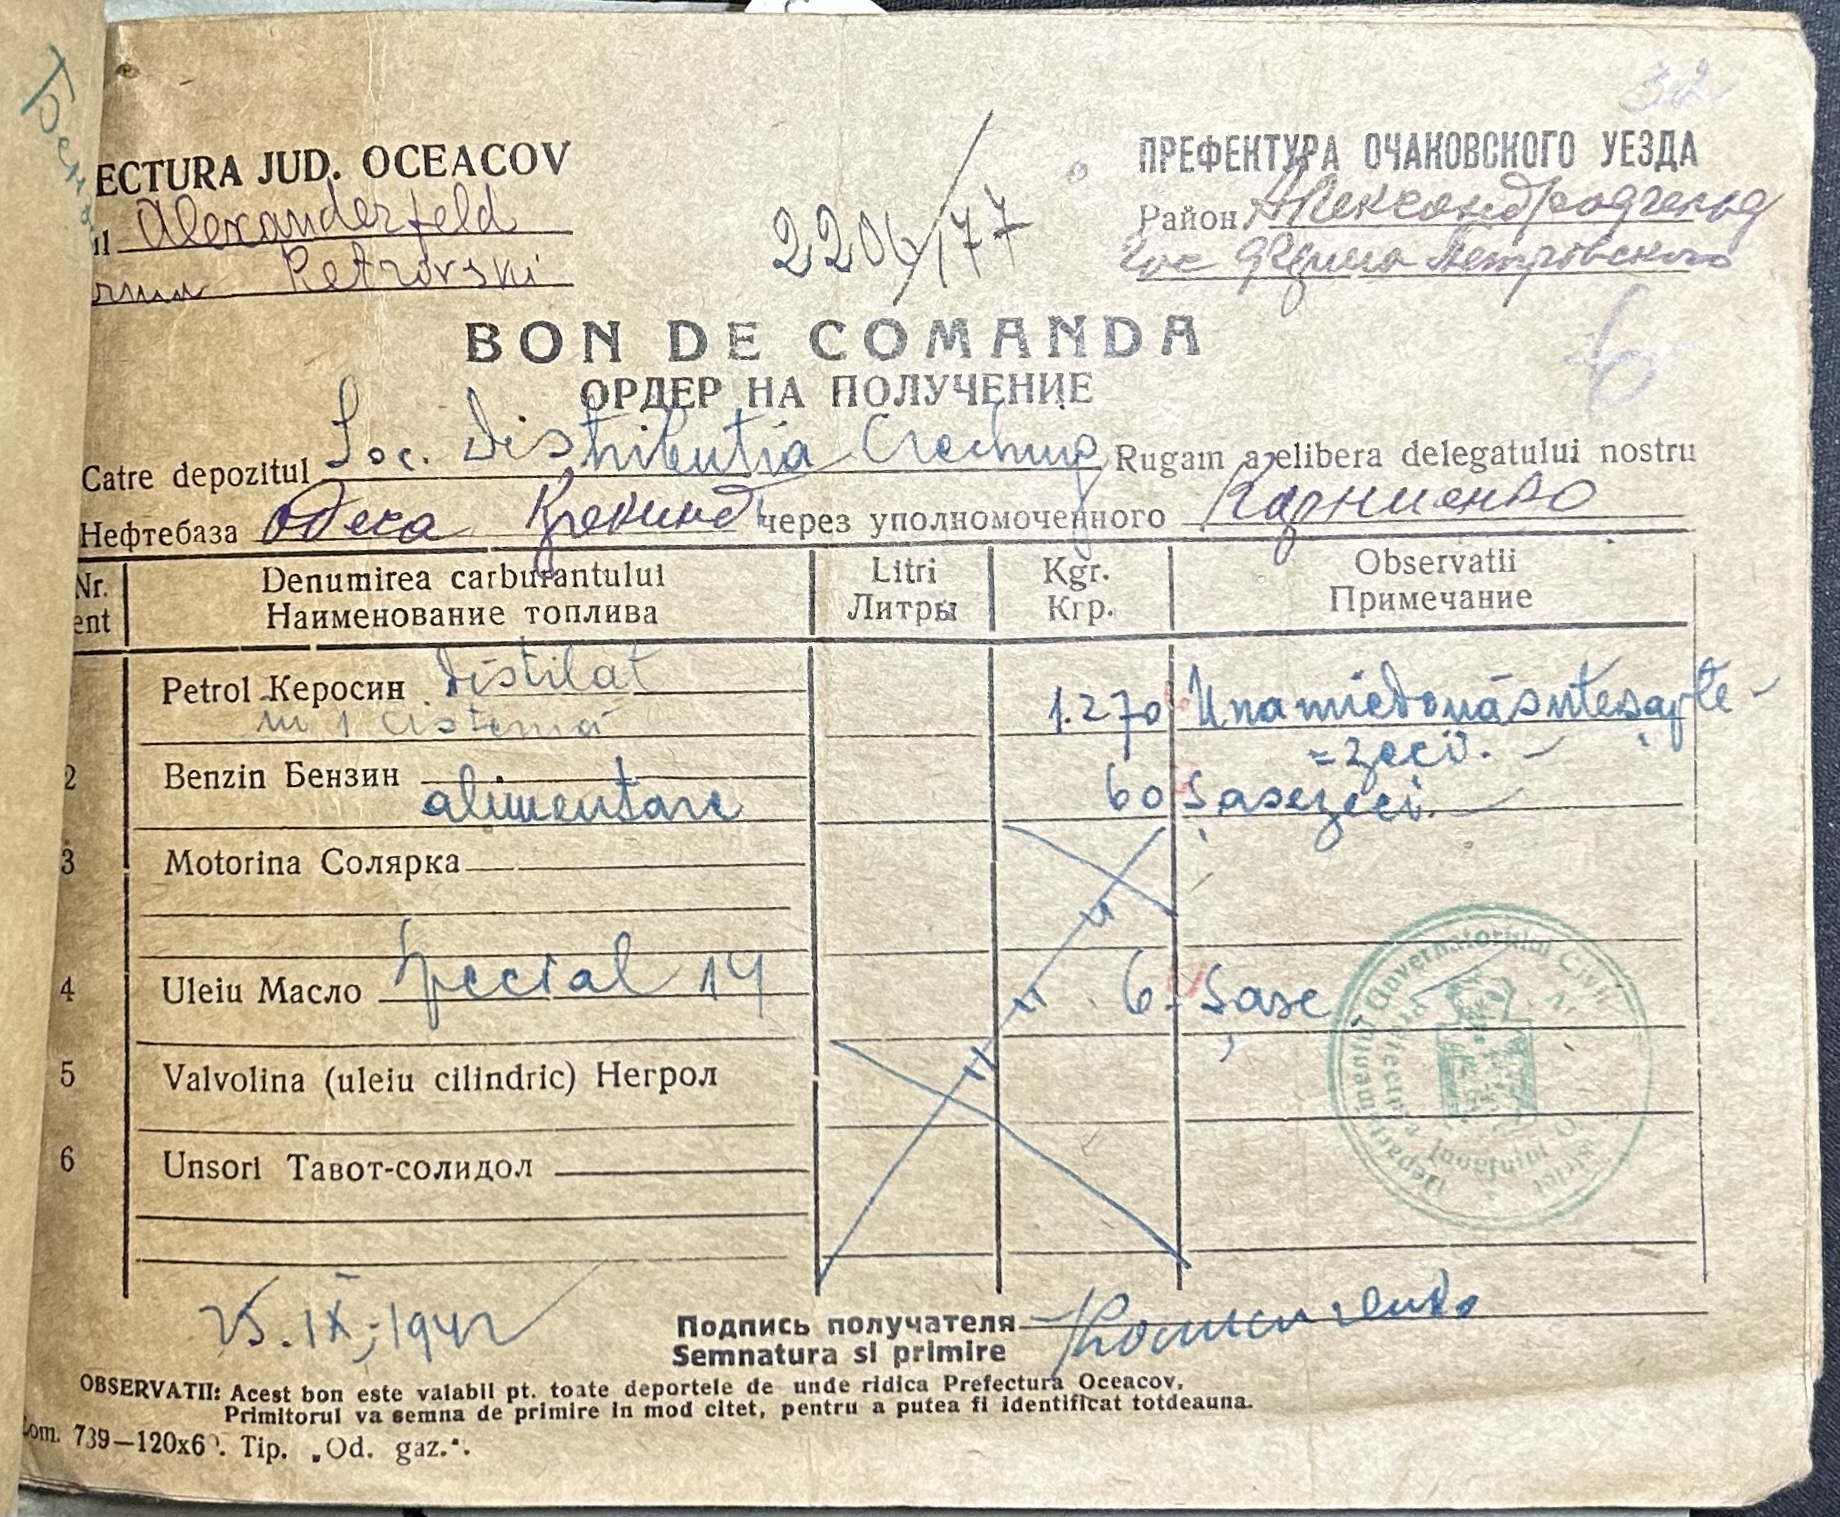 32
ECTURA JUD. OCEACOV
ПРЕФЕКТУРА ОЧАКОВСКОГО УЕЗДА
Alexanderfeld
2206/77
Район
Petrovski
Гос Петровского
6
BON DE COMANDA
ОРДЕР НА ПОЛУЧЕНИЕ
Catre depozitul Soc. Distributia Cracking Rugam a elibera delegatului nostru
Нефтебаза Одеса Крекинг через уполномоченного Корниенко
Nr. Denumirea carburantului Litri Kgr. Observatii
ent Наименование топлива Литры Кгр. Примечание
Petrol Керосин Distilat 1.270 Unamiedouăsuteșapte-
in 1 cisternă =zeci.-
2 Benzin Бензин 60 Șasezeci.
alimentare
3 Motorina Солярка
4 Uleiu Масло Special 14 6. Șase
5 Valvolina (uleiu cilindric) Негрол
6 Unsori Тавот-солидол
Guvernatorului Civil
25.IX.1942
Подпись получателя
Semnatura si primire
OBSERVATII: Acest bon este valabil pt. toate deportele de unde ridica Prefectura Oceacov.
Primitorul va semna de primire in mod citet, pentru a putea fi identificat totdeauna.
om. 739—120x6 . Tip. „Od. gaz.".